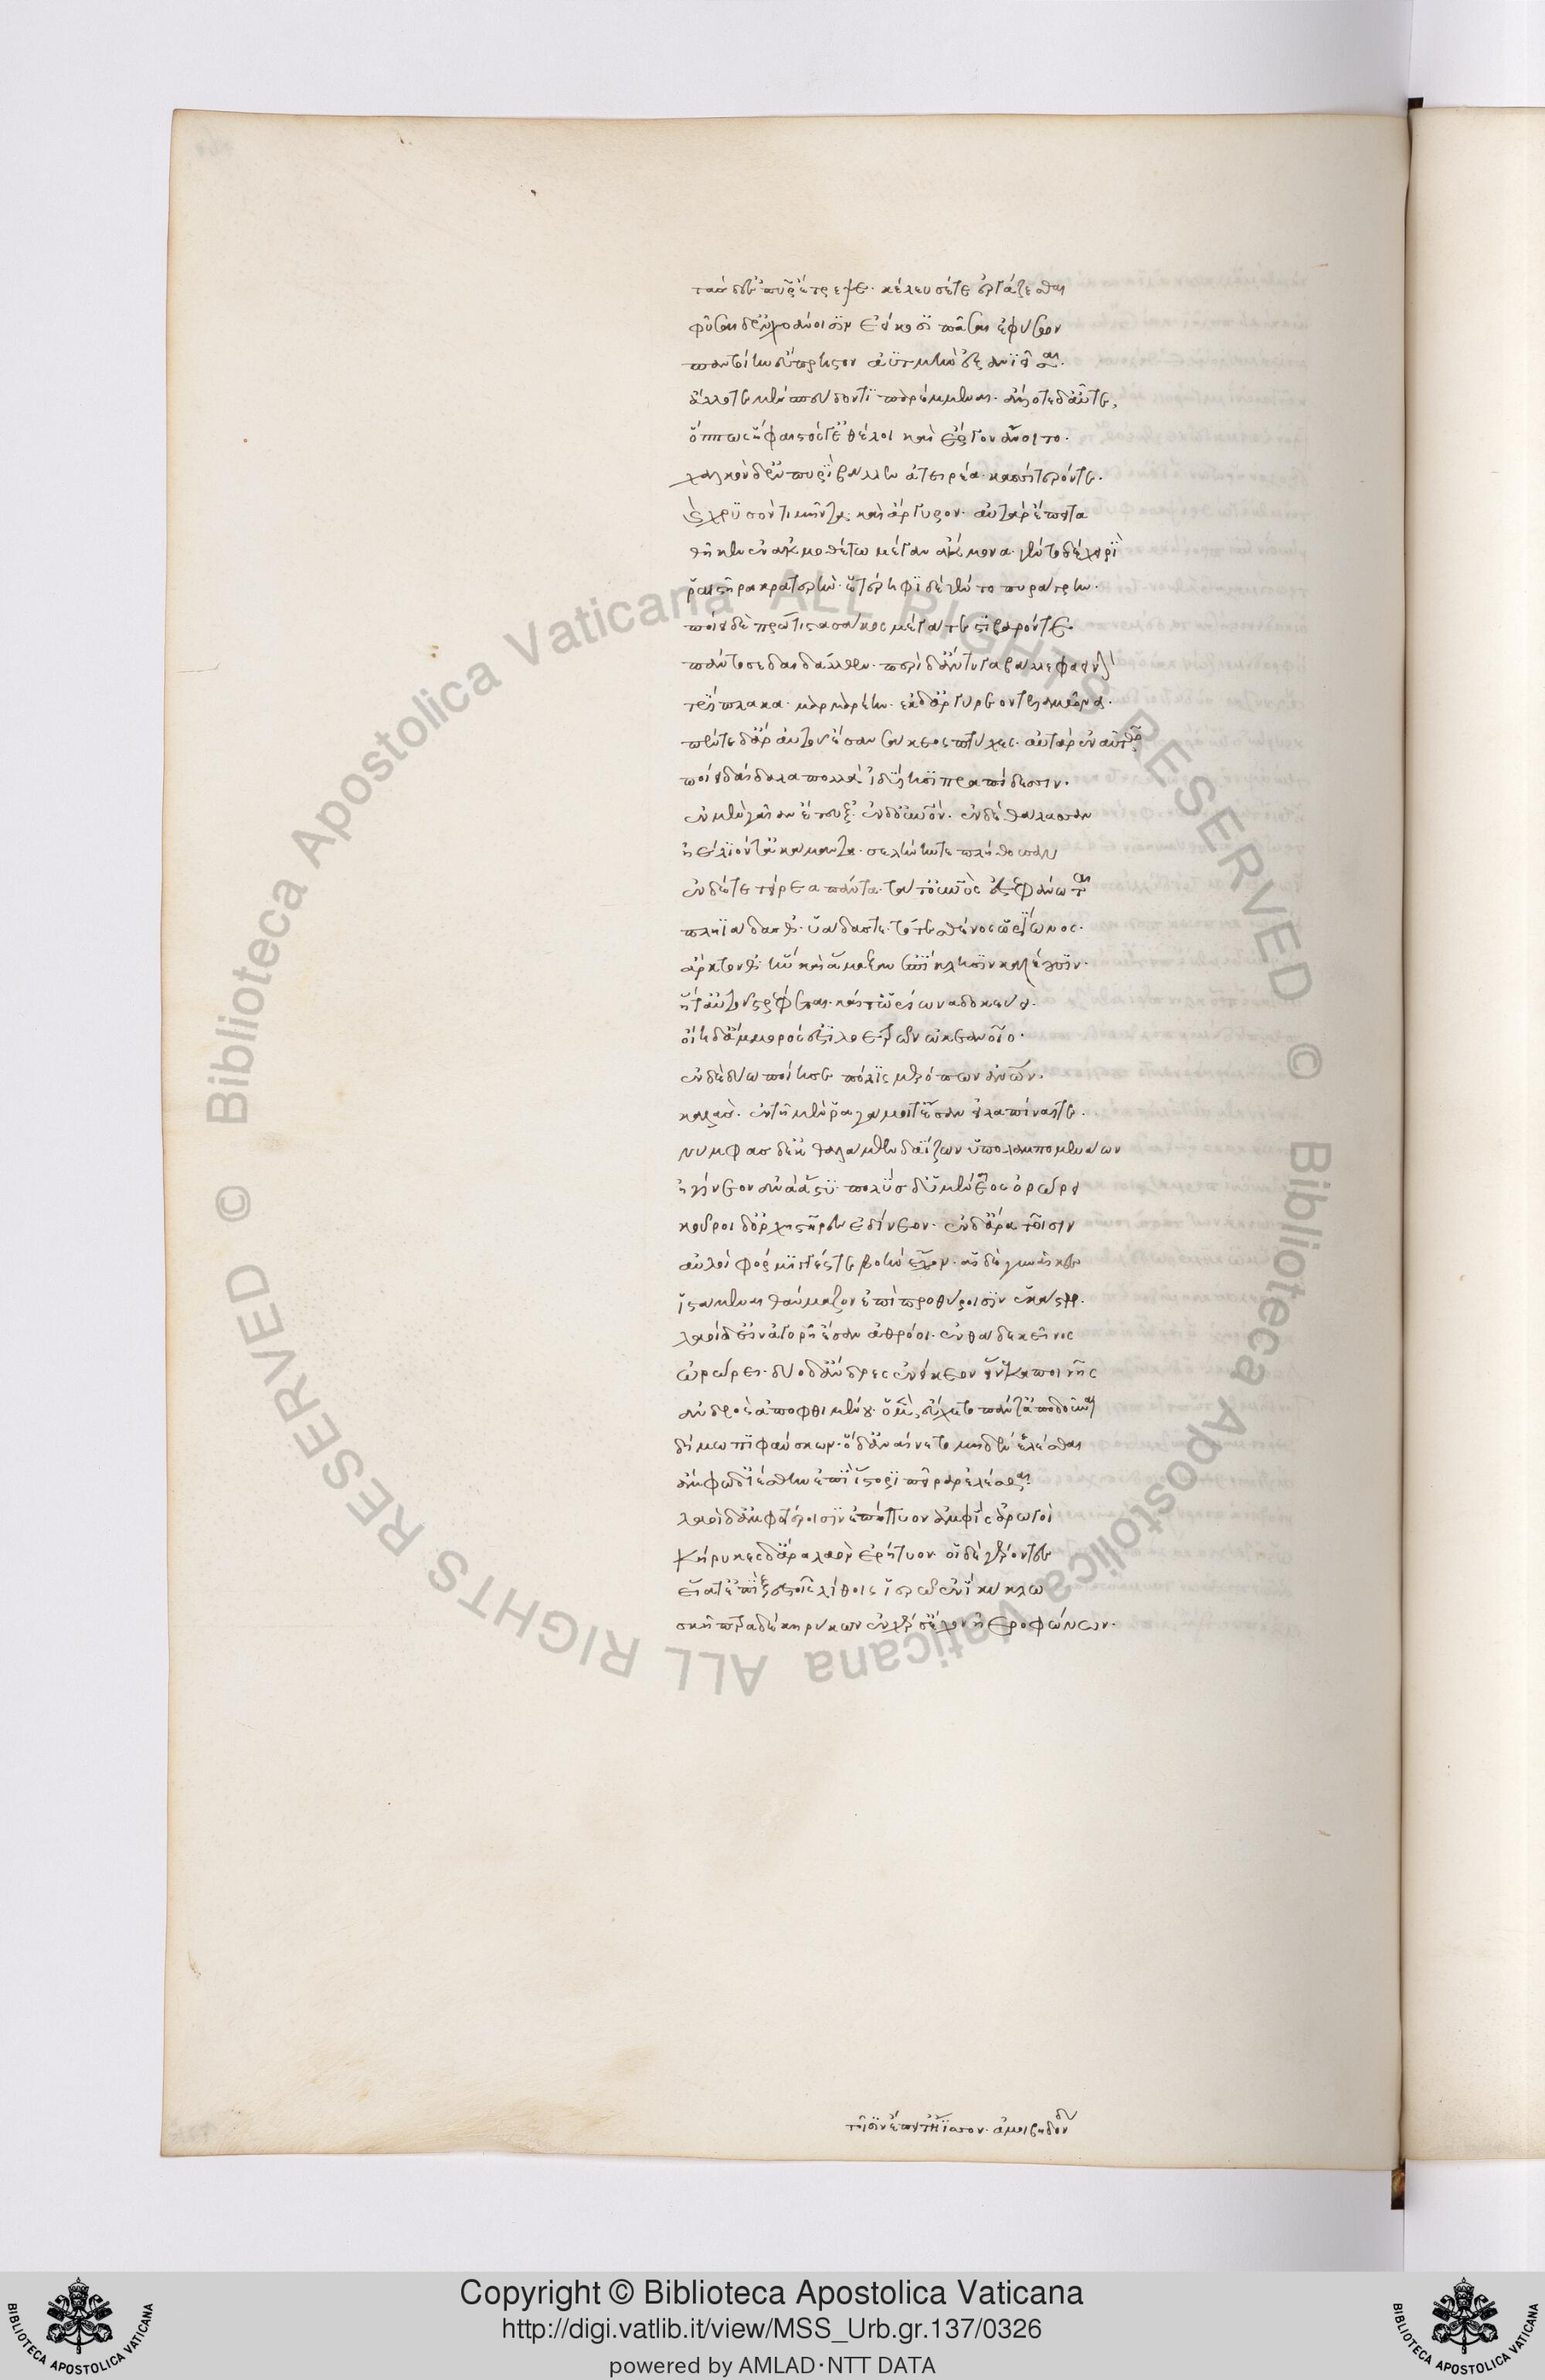 τὰσ δ' ἐς πῦρ ἔτρεψε· κέλευσέ τε ἐργάζεσθαι
φῦσαι δ' ἐν χοάνοισιν ἐείκοσι πᾶσαι ἐφύσων
παντοίην εὔπρηστον ἀϋτμὴν ἐξανιεῖσαι·
ἄλλοτε μὲν σπεύδοντι παρέμμεναι· ἄλλοτε δ' αὖτε,
ὅππως ἥφαιστός τ' ἐθέλοι καὶ ἔργον ἄνοιτο·
χαλκὸν δ' ἐν πυρὶ βάλλεν ἀτειρέα· κασσίτερόν τε·
καὶ χρυσὸν τιμῆντα· καὶ ἄργυρον· αὐτὰρ ἔπειτα
θῆκεν ἐν ἀκμοθέτω μέγαν ἄκμονα· γέντο δὲ χειρὶ
ῥαιστῆρα κρατερὴν· ἑτέρηφι δὲ γέντο πυράγρην·
ποίει δὲ πρώτιστα σάκος μέγα τε στιβαρόν τε·
πάντοσε δαιδάλλων· περὶ δ' ἄντυγα βάλλε φαεινὴν
τρίπλακα· μαρμαρέην· ἐκ δ' ἀργύρεον τελαμῶνα·
πέντε δ' ἄρ' αὐτοῦ ἔσαν σάκεος πτύχες· αὐτὰρ ἐν αὐτῶ
ποίει δαίδαλα πολλὰ ἰδυίησι πραπίδεσσιν·
ἐν μὲν γαῖαν ἔτευξ'· ἐν δ' οὐρανόν· ἐν δὲ θάλασσαν
ἠέλιόν τ' ἀκάμαντα· σελήνην τε πλήθουσαν
ἐν δέ τε τείρεα πάντα· τά τ' οὐρανὸς ἐστεφάνωται
πληϊάδας θ'· ὑάδας τε· τό τε σθένος ὠρίωνος·
ἄρκτον θ'· ἣν καὶ ἄμαξαν ἐπίκλησιν καλέουσιν·
ἥ τ' αὐτοῦ στρέφεται· καί τ' ὠρίωνα δοκεύει·
οἴη δ' ἄμμορός ἐστι λοετρῶν ὠκεανοῖο·
ἐν δὲ δύω ποίησε πόλις μερόπων ἀνθρώπων·
καλάσ· ἐν τῆ μὲν ῥα γάμοι τ' ἔσαν εἰλαπίναι τε·
νύμφασ δ' ἐκ θαλάμων δαΐδων ὕπο λαμπομενάων
ἠγίνεον ἀνὰ ἄστυ· πολὺσ δ' ὑμέναιος ὀρώρει
κοῦροι δ' ὀρχηστῆρες ἐδίνεον· ἐν δ' ἄρα τοῖσιν
αὐλοὶ φόρμιγγές τε βοὴν ἔχον· αἱ δὲ γυναῖκες
ἱστάμεναι θαύμαζον ἐπὶ προθύροισιν ἑκάστη·
λαοὶ δ' εἰν ἀγορῆ ἔσαν ἀθρόοι· ἔνθα δὲ νεῖκος
ὠρώρει· δύο δ' ἄνδρες ἐνείκεον εἵνεκα ποινῆς
ἀνδρὸς ἀποφθιμένου· ὁ μὲν εὔχετο πάντ' ἀποδοῦναι
δήμω πιφαύσκων· ὁ δ' ἀναίνετο μηδὲν ἑλέσθαι
ἄμφω δ' ἱέσθην ἐπὶ ἴστορι πεῖραρ ἑλέσθαι·
λαοὶ δ' ἀμφοτέροισιν ἐπήπυον ἀμφὶς ἀρωγοὶ
κήρυκες δ' ἄρα λαὸν ἐρήτυον· οἱ δὲ γέροντες
εἵατ' ἐπὶ ξεστοῖς λίθοις ἱερῶ ἐνὶ κύκλω
σκῆπτρα δὲ κηρύκων ἐν χέρσ' ἔχον ἠεροφώνων·
τοῖσιν ἔπειτ' ἤϊσσον· ἀμοιβηδὸν
Copyright © Biblioteca Apostolica Vaticana
http://digi.vatlib.it/view/MSS_Urb.gr.137/0326
powered by AMLAD·NTT DATA
BIBLIOTECA APOSTOLICA VATICANA
BIBLIOTECA APOSTOLICA VATICANA
© Biblioteca Apostolica Vaticana ALL RIGHTS RESERVED
© Biblioteca Apostolica Vaticana ALL RIGHTS RESERVED